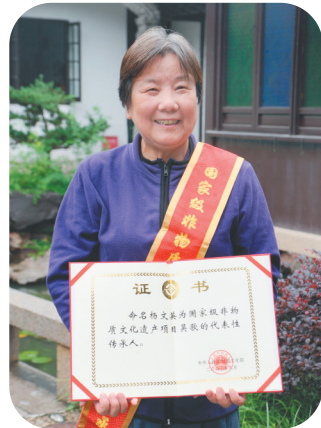 国家级非物质
证 书
命名杨文英为国家级非物
质文化遗产项目吴歌的代表性
传承人。